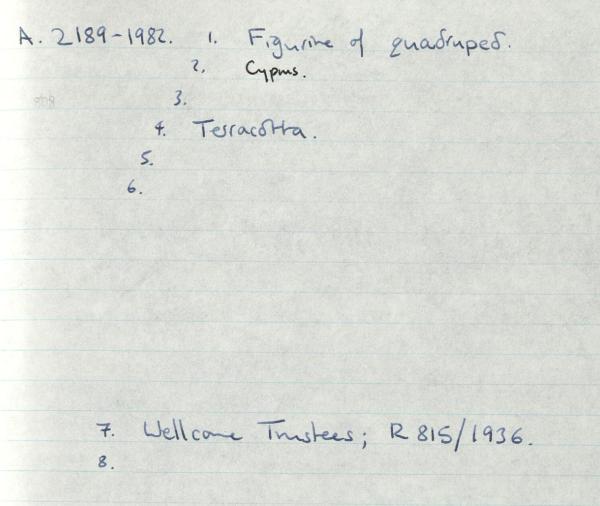 A. 2189-1982. 1. Figurine of quadruped.
2. Cyprus.
3.
4. Terracotta.
5.
6.
7. Wellcome Trustees; R 815/1936.
8.